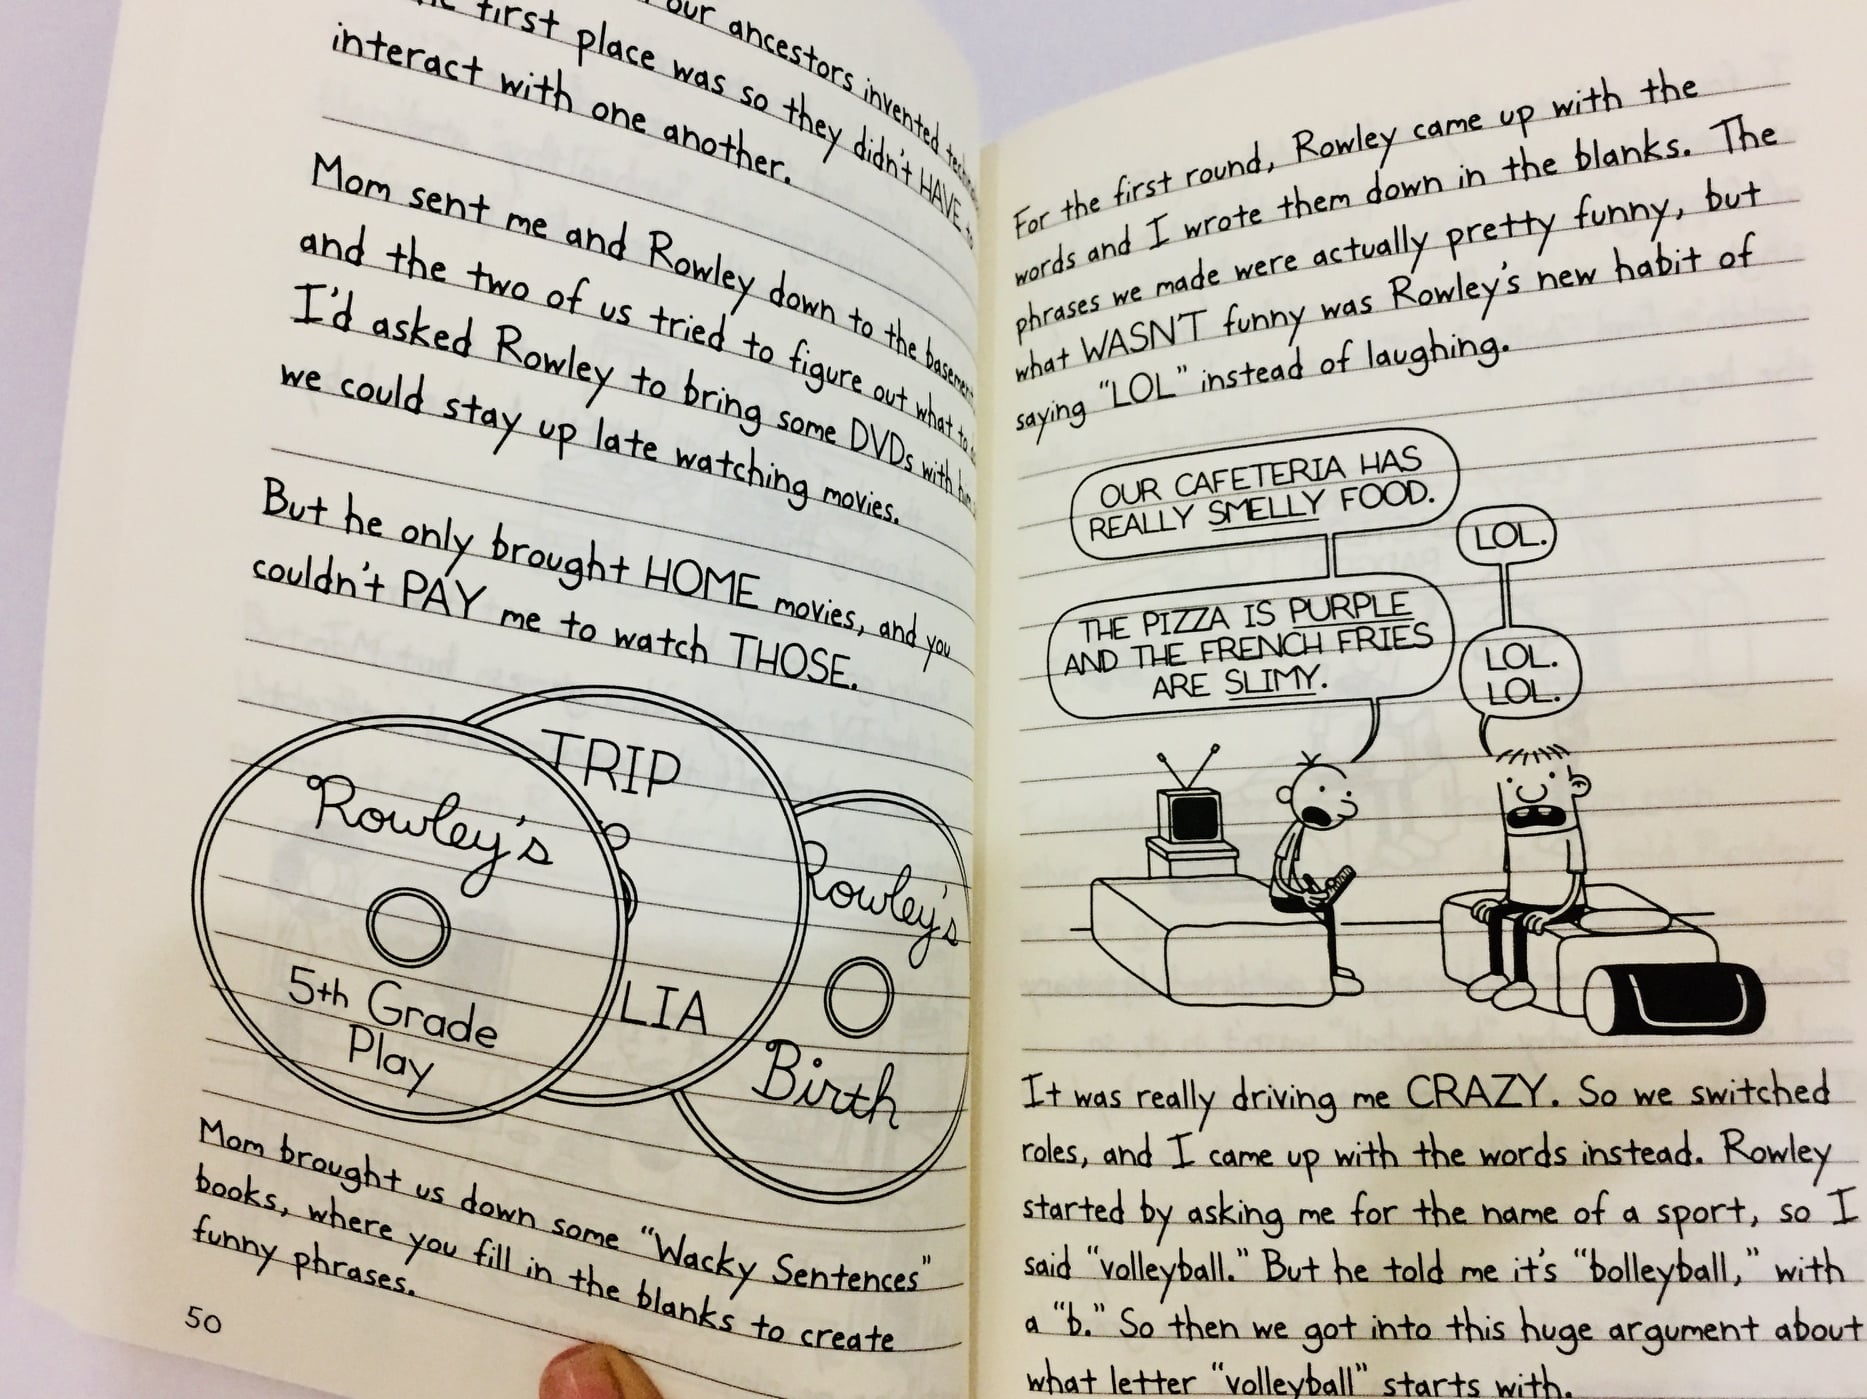 our ancestors invented
first place was so they didn't HAVE to
interact with one another.
Mom sent me and Rowley down to the basement
and the two of us tried to figure out what to
I'd asked Rowley to bring some DVDs with him
we could stay up late watching movies.
But he only brought HOME movies, and you
couldn't PAY me to watch THOSE.
Rowley's
5th Grade
Play
TRIP
LIA
Rowley's
Birth
Mom brought us down some "Wacky Sentences"
books, where you fill in the blanks to create
funny phrases.
50
For the first round, Rowley came up with the
words and I wrote them down in the blanks. The
phrases we made were actually pretty funny, but
what WASN'T funny was Rowley's new habit of
saying "LOL" instead of laughing.
OUR CAFETERIA HAS
REALLY SMELLY FOOD.
LOL.
THE PIZZA IS PURPLE
AND THE FRENCH FRIES
ARE SLIMY.
LOL.
LOL.
It was really driving me CRAZY. So we switched
roles, and I came up with the words instead. Rowley
started by asking me for the name of a sport, so I
said "volleyball." But he told me it's "bolleyball," with
a "b." So then we got into this huge argument about
what letter "volleyball" starts with.